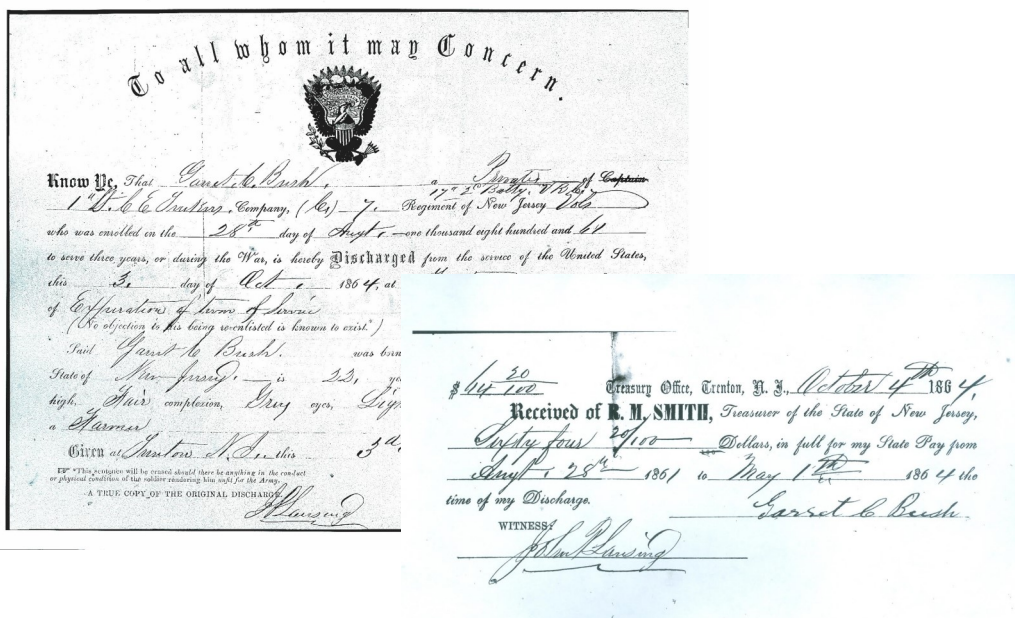 To all whom it may Concern.
Know Ye, That Garret C. Bush, a Private of Captain
17" 2" Batty. V R C,
1" Lt. C E Company, (C,) 7, Regiment of New Jersey Vols
who was enrolled on the 28th day of Augt, one thousand eight hundred and 61
to serve three years, or during the War, is hereby Discharged from the service of the United States,
this 3, day of Oct, 1864, at
of Expiration of term of Service
(No objection to his being re-enlisted is known to exist.*)
Said Garret C Bush, was born
State of New Jersey, is 22, ye
high, Fair complexion, Grey eyes, Lig
a Farmer
Given at Trenton N. J. this 3d
"This sentence will be erased should there be anything in the conduct
or physical condition of the soldier rendering him unfit for the Army.
A TRUE COPY OF THE ORIGINAL DISCHARGE.
J P Lansing
$64 20/100 Treasury Office, Trenton, N. J., October 4th 1864,
Received of R. M. SMITH, Treasurer of the State of New Jersey,
Sixty four 20/100 Dollars, in full for my State Pay from
Augt. 28th 1861 to May 1th 1864 the
time of my Discharge.
Garret C Bush.
WITNESS:
John P Lansing